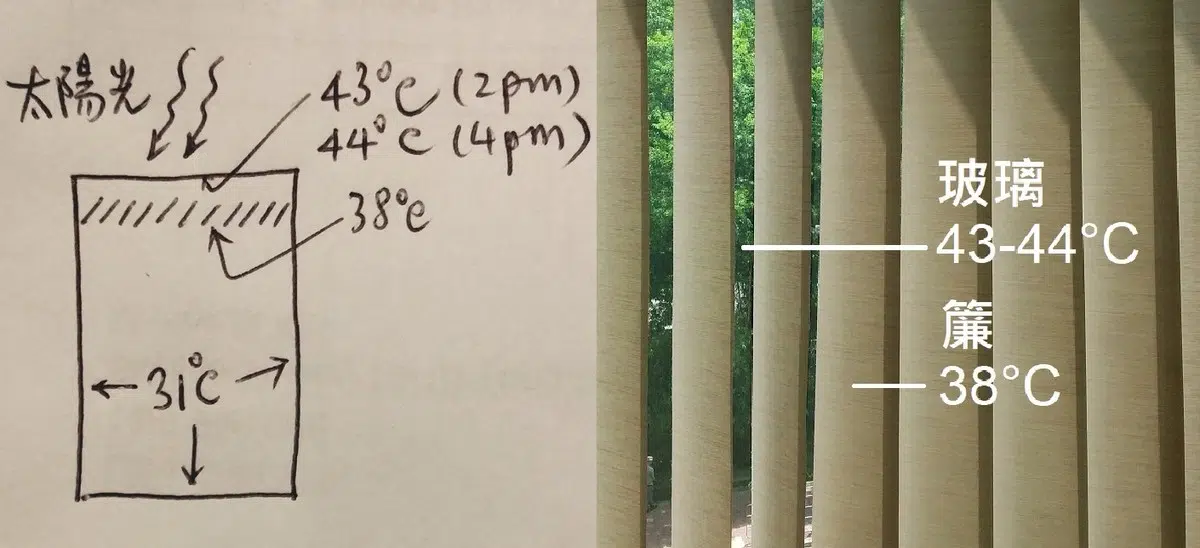 太陽光
43°C (2pm)
44°C (4pm)
38°C
31°C
玻璃
43-44°C
簾
38°C